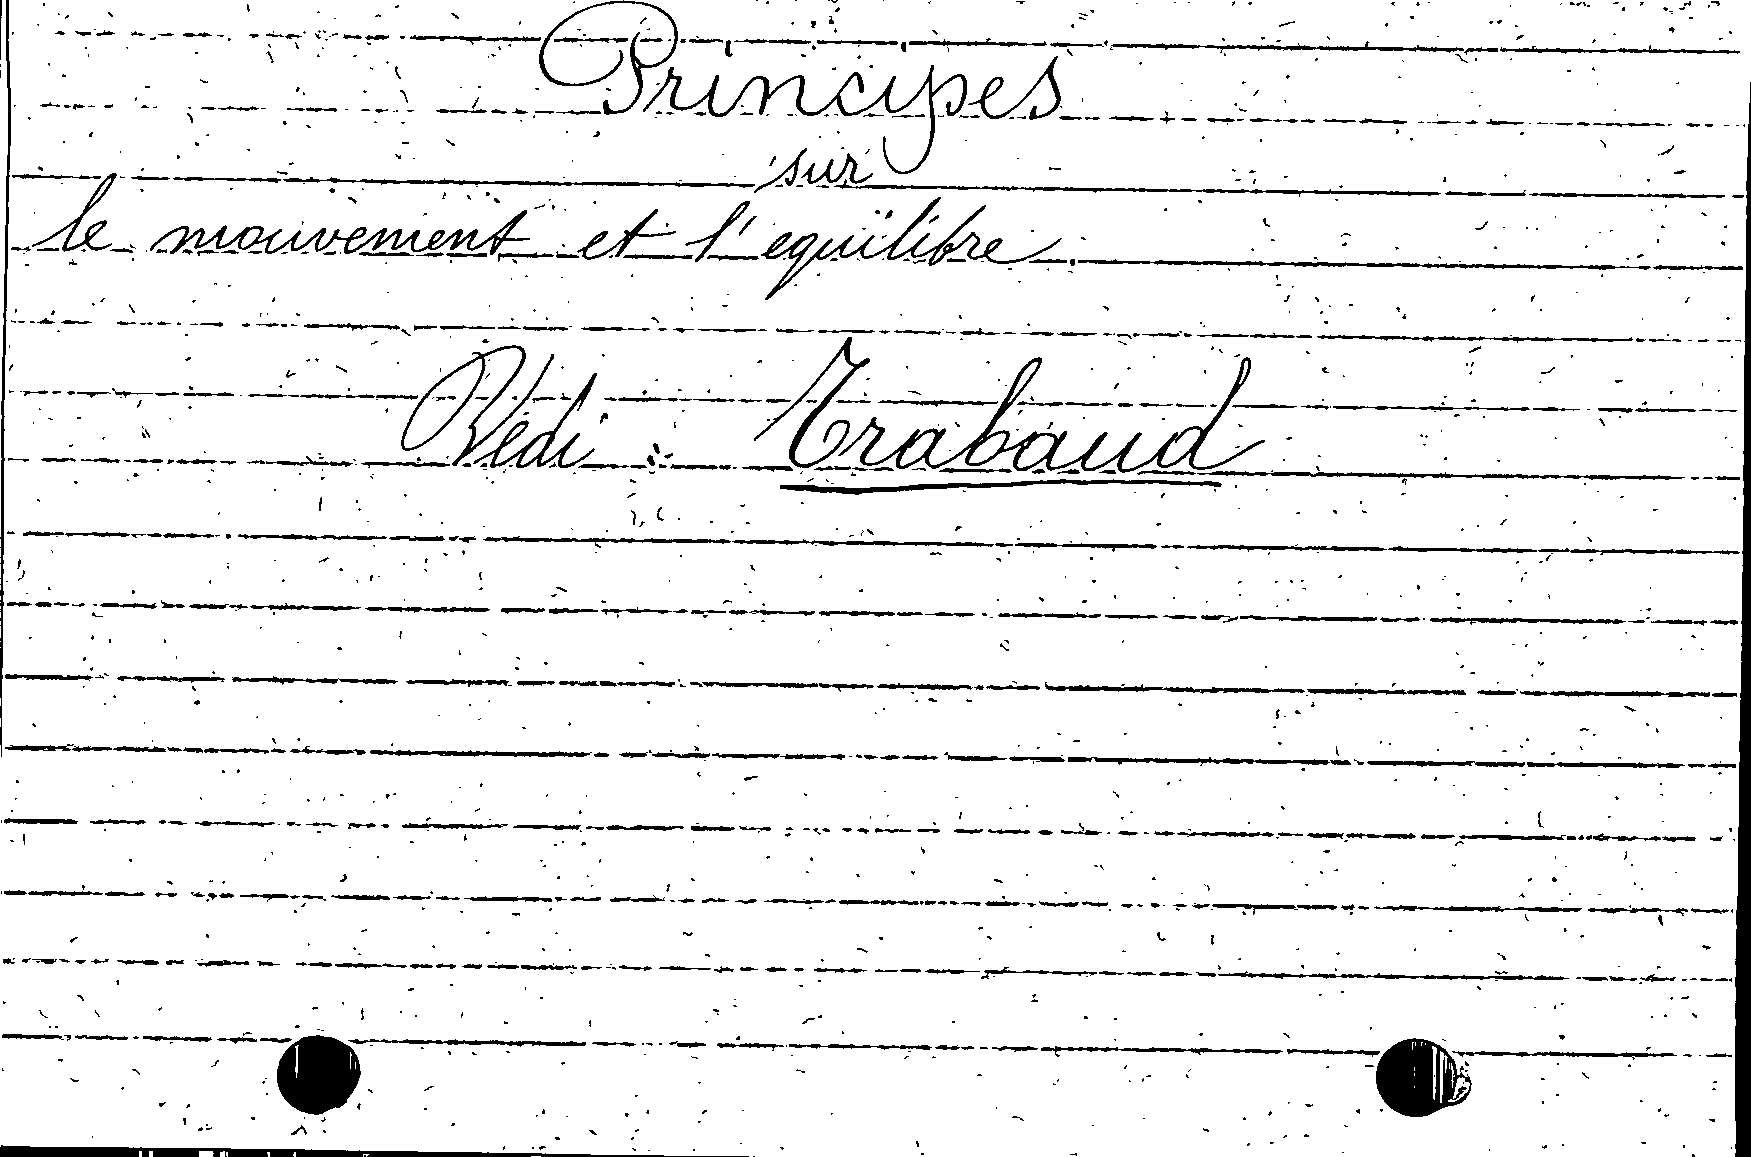 Principes
sur
le mouvement et l'equilibre.
Vedi : Trabaud